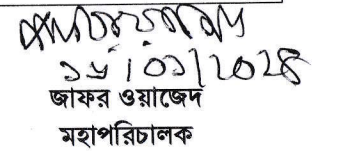 ১৮/০১/২০২৪
জাফর ওয়াজেদ
মহাপরিচালক